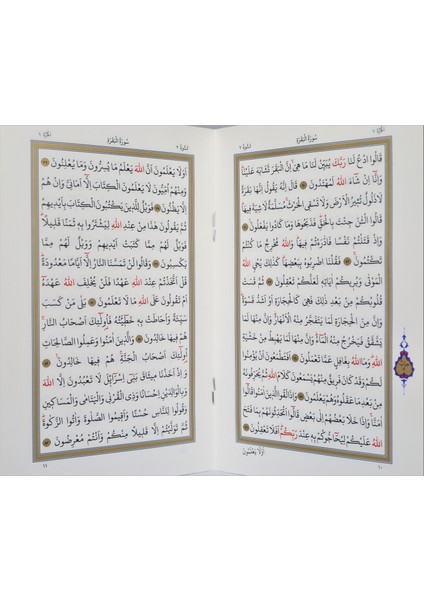 الجزء ١ سورة البقرة سورة ٢
قَالُوا ادْعُ لَنَا رَبَّكَ يُبَيِّنْ لَنَا مَا هِيَ اِنَّ الْبَقَرَ تَشَابَهَ عَلَيْنَا
وَاِنَّا اِنْ شَاءَ اللّٰهُ لَمُهْتَدُونَ ٧٠ قَالَ اِنَّهُ يَقُولُ اِنَّهَا بَقَرَةٌ
لَا ذَلُولٌ تُثِيرُ الْاَرْضَ وَلَا تَسْقِي الْحَرْثَ مُسَلَّمَةٌ لَا شِيَةَ فِيهَا
قَالُوا الْـٰٔنَ جِئْتَ بِالْحَقِّ فَذَبَحُوهَا وَمَا كَادُوا يَفْعَلُونَ ٧١
وَاِذْ قَتَلْتُمْ نَفْسًا فَادّٰرَءْتُمْ فِيهَا وَاللّٰهُ مُخْرِجٌ مَا كُنْتُمْ
تَكْتُمُونَ ٧٢ فَقُلْنَا اضْرِبُوهُ بِبَعْضِهَا كَذٰلِكَ يُحْيِ اللّٰهُ
الْمَوْتٰى وَيُرِيكُمْ اٰيَاتِهِ لَعَلَّكُمْ تَعْقِلُونَ ٧٣ ثُمَّ قَسَتْ
قُلُوبُكُمْ مِنْ بَعْدِ ذٰلِكَ فَهِيَ كَالْحِجَارَةِ اَوْ اَشَدُّ قَسْوَةً
وَاِنَّ مِنَ الْحِجَارَةِ لَمَا يَتَفَجَّرُ مِنْهُ الْاَنْهَارُ وَاِنَّ مِنْهَا
لَمَا يَشَّقَّقُ فَيَخْرُجُ مِنْهُ الْمَاءُ وَاِنَّ مِنْهَا لَمَا يَهْبِطُ مِنْ خَشْيَةِ
اللّٰهِ وَمَا اللّٰهُ بِغَافِلٍ عَمَّا تَعْمَلُونَ ٧٤ اَفَتَطْمَعُونَ اَنْ يُؤْمِنُوا
لَكُمْ وَقَدْ كَانَ فَرِيقٌ مِنْهُمْ يَسْمَعُونَ كَلَامَ اللّٰهِ ثُمَّ يُحَرِّفُونَهُ
مِنْ بَعْدِ مَا عَقَلُوهُ وَهُمْ يَعْلَمُونَ ٧٥ وَاِذَا لَقُوا الَّذِينَ اٰمَنُوا قَالُوا
اٰمَنَّا وَاِذَا خَلَا بَعْضُهُمْ اِلٰى بَعْضٍ قَالُوا اَتُحَدِّثُونَهُمْ بِمَا فَتَحَ
اللّٰهُ عَلَيْكُمْ لِيُحَاجُّوكُمْ بِهِ عِنْدَ رَبِّكُمْ اَفَلَا تَعْقِلُونَ ٧٦
اَوَلَا يَعْلَمُونَ
١٠
سورة ٢ سورة البقرة الجزء ١
اَوَلَا يَعْلَمُونَ اَنَّ اللّٰهَ يَعْلَمُ مَا يُسِرُّونَ وَمَا يُعْلِنُونَ ٧٧
وَمِنْهُمْ اُمِّيُّونَ لَا يَعْلَمُونَ الْكِتَابَ اِلَّا اَمَانِيَّ وَاِنْ هُمْ
اِلَّا يَظُنُّونَ ٧٨ فَوَيْلٌ لِلَّذِينَ يَكْتُبُونَ الْكِتَابَ بِاَيْدِيهِمْ
ثُمَّ يَقُولُونَ هٰذَا مِنْ عِنْدِ اللّٰهِ لِيَشْتَرُوا بِهِ ثَمَنًا قَلِيلًا
فَوَيْلٌ لَهُمْ مِمَّا كَتَبَتْ اَيْدِيهِمْ وَوَيْلٌ لَهُمْ مِمَّا
يَكْسِبُونَ ٧٩ وَقَالُوا لَنْ تَمَسَّنَا النَّارُ اِلَّا اَيَّامًا مَعْدُودَةً
قُلْ اَتَّخَذْتُمْ عِنْدَ اللّٰهِ عَهْدًا فَلَنْ يُخْلِفَ اللّٰهُ عَهْدَهُ
اَمْ تَقُولُونَ عَلَى اللّٰهِ مَا لَا تَعْلَمُونَ ٨٠ بَلٰى مَنْ كَسَبَ
سَيِّئَةً وَاَحَاطَتْ بِهِ خَطِيئَتُهُ فَاُولٰئِكَ اَصْحَابُ النَّارِ
هُمْ فِيهَا خَالِدُونَ ٨١ وَالَّذِينَ اٰمَنُوا وَعَمِلُوا الصَّالِحَاتِ
اُولٰئِكَ اَصْحَابُ الْجَنَّةِ هُمْ فِيهَا خَالِدُونَ ٨٢
وَاِذْ اَخَذْنَا مِيثَاقَ بَنِي اِسْرَائِلَ لَا تَعْبُدُونَ اِلَّا اللّٰهَ
وَبِالْوَالِدَيْنِ اِحْسَانًا وَذِي الْقُرْبٰى وَالْيَتَامٰى وَالْمَسَاكِينِ
وَقُولُوا لِلنَّاسِ حُسْنًا وَاَقِيمُوا الصَّلٰوةَ وَاٰتُوا الزَّكٰوةَ
ثُمَّ تَوَلَّيْتُمْ اِلَّا قَلِيلًا مِنْكُمْ وَاَنْتُمْ مُعْرِضُونَ ٨٣
١١